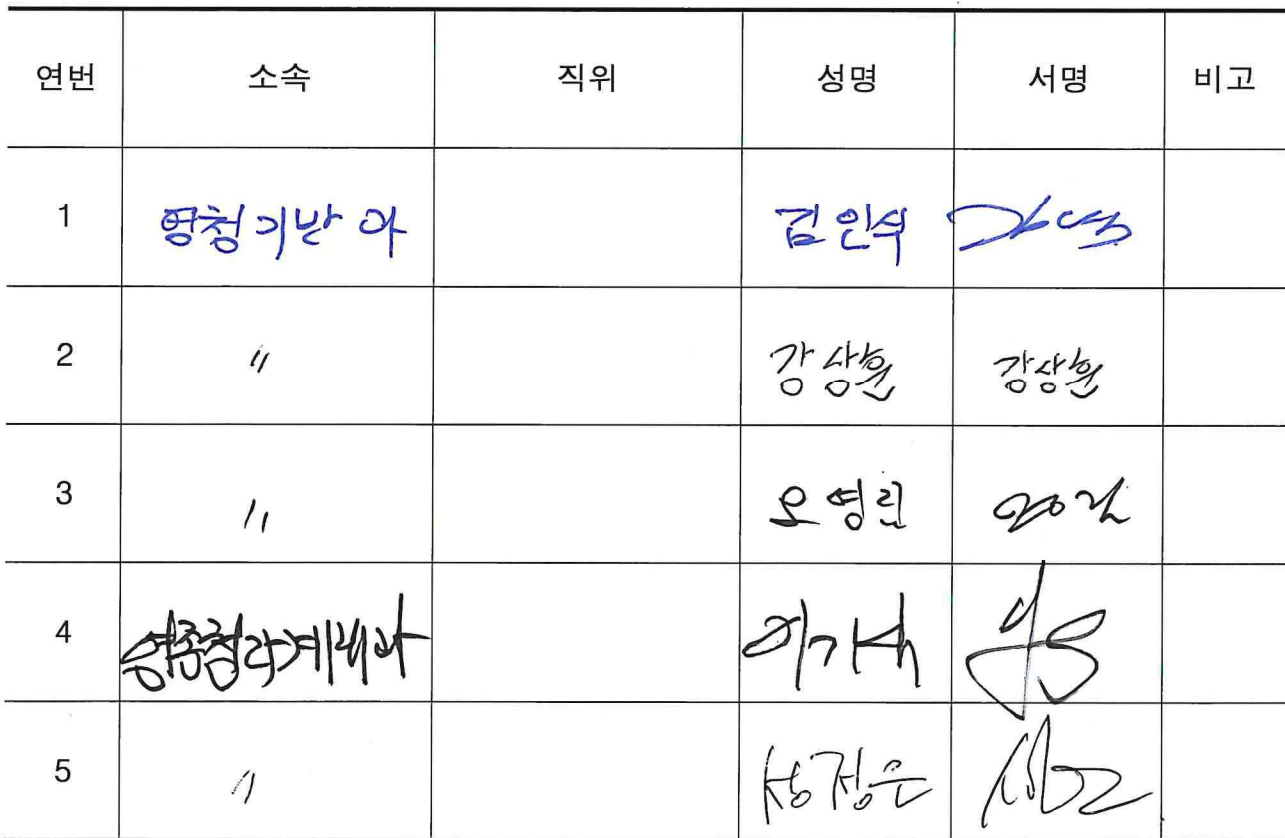 연번 소속 직위 성명 서명 비고
1 영청기반과 김인수
2 〃 강상훈 강상훈
3 〃 오영린
4 영종청라계획과 이기새
5 〃 성정은